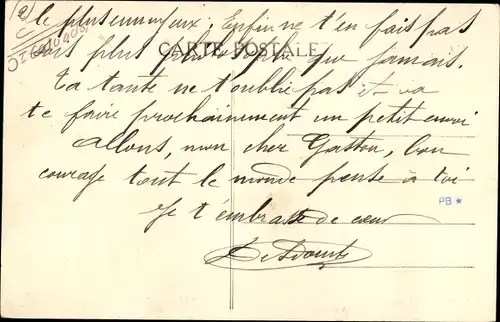 2)
le plus ennuyeux. Enfin ne t'en fais pas
sois plus philosophe que jamais.
CARTE POSTALE
Ta tante ne t'oublie pas et va
te faire prochainement un petit envoi
Allons, mon cher Gaston, bon
courage tout le monde pense à toi
Je t'embrasse de cœur
PB *